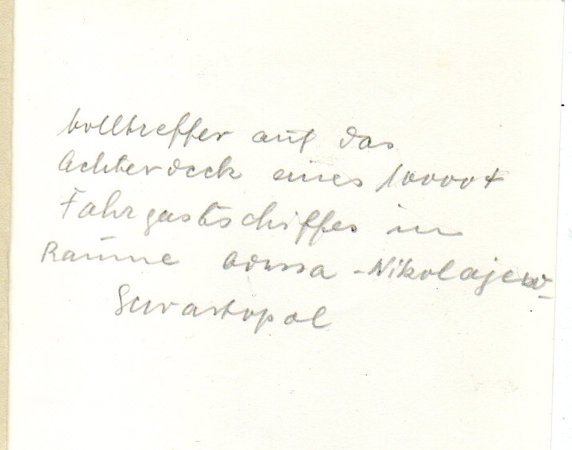 Volltreffer auf das
Achterdeck eines 10000t
Fahrgastschiffes im
Raume Odessa-Nikolajew-
Sewastopol